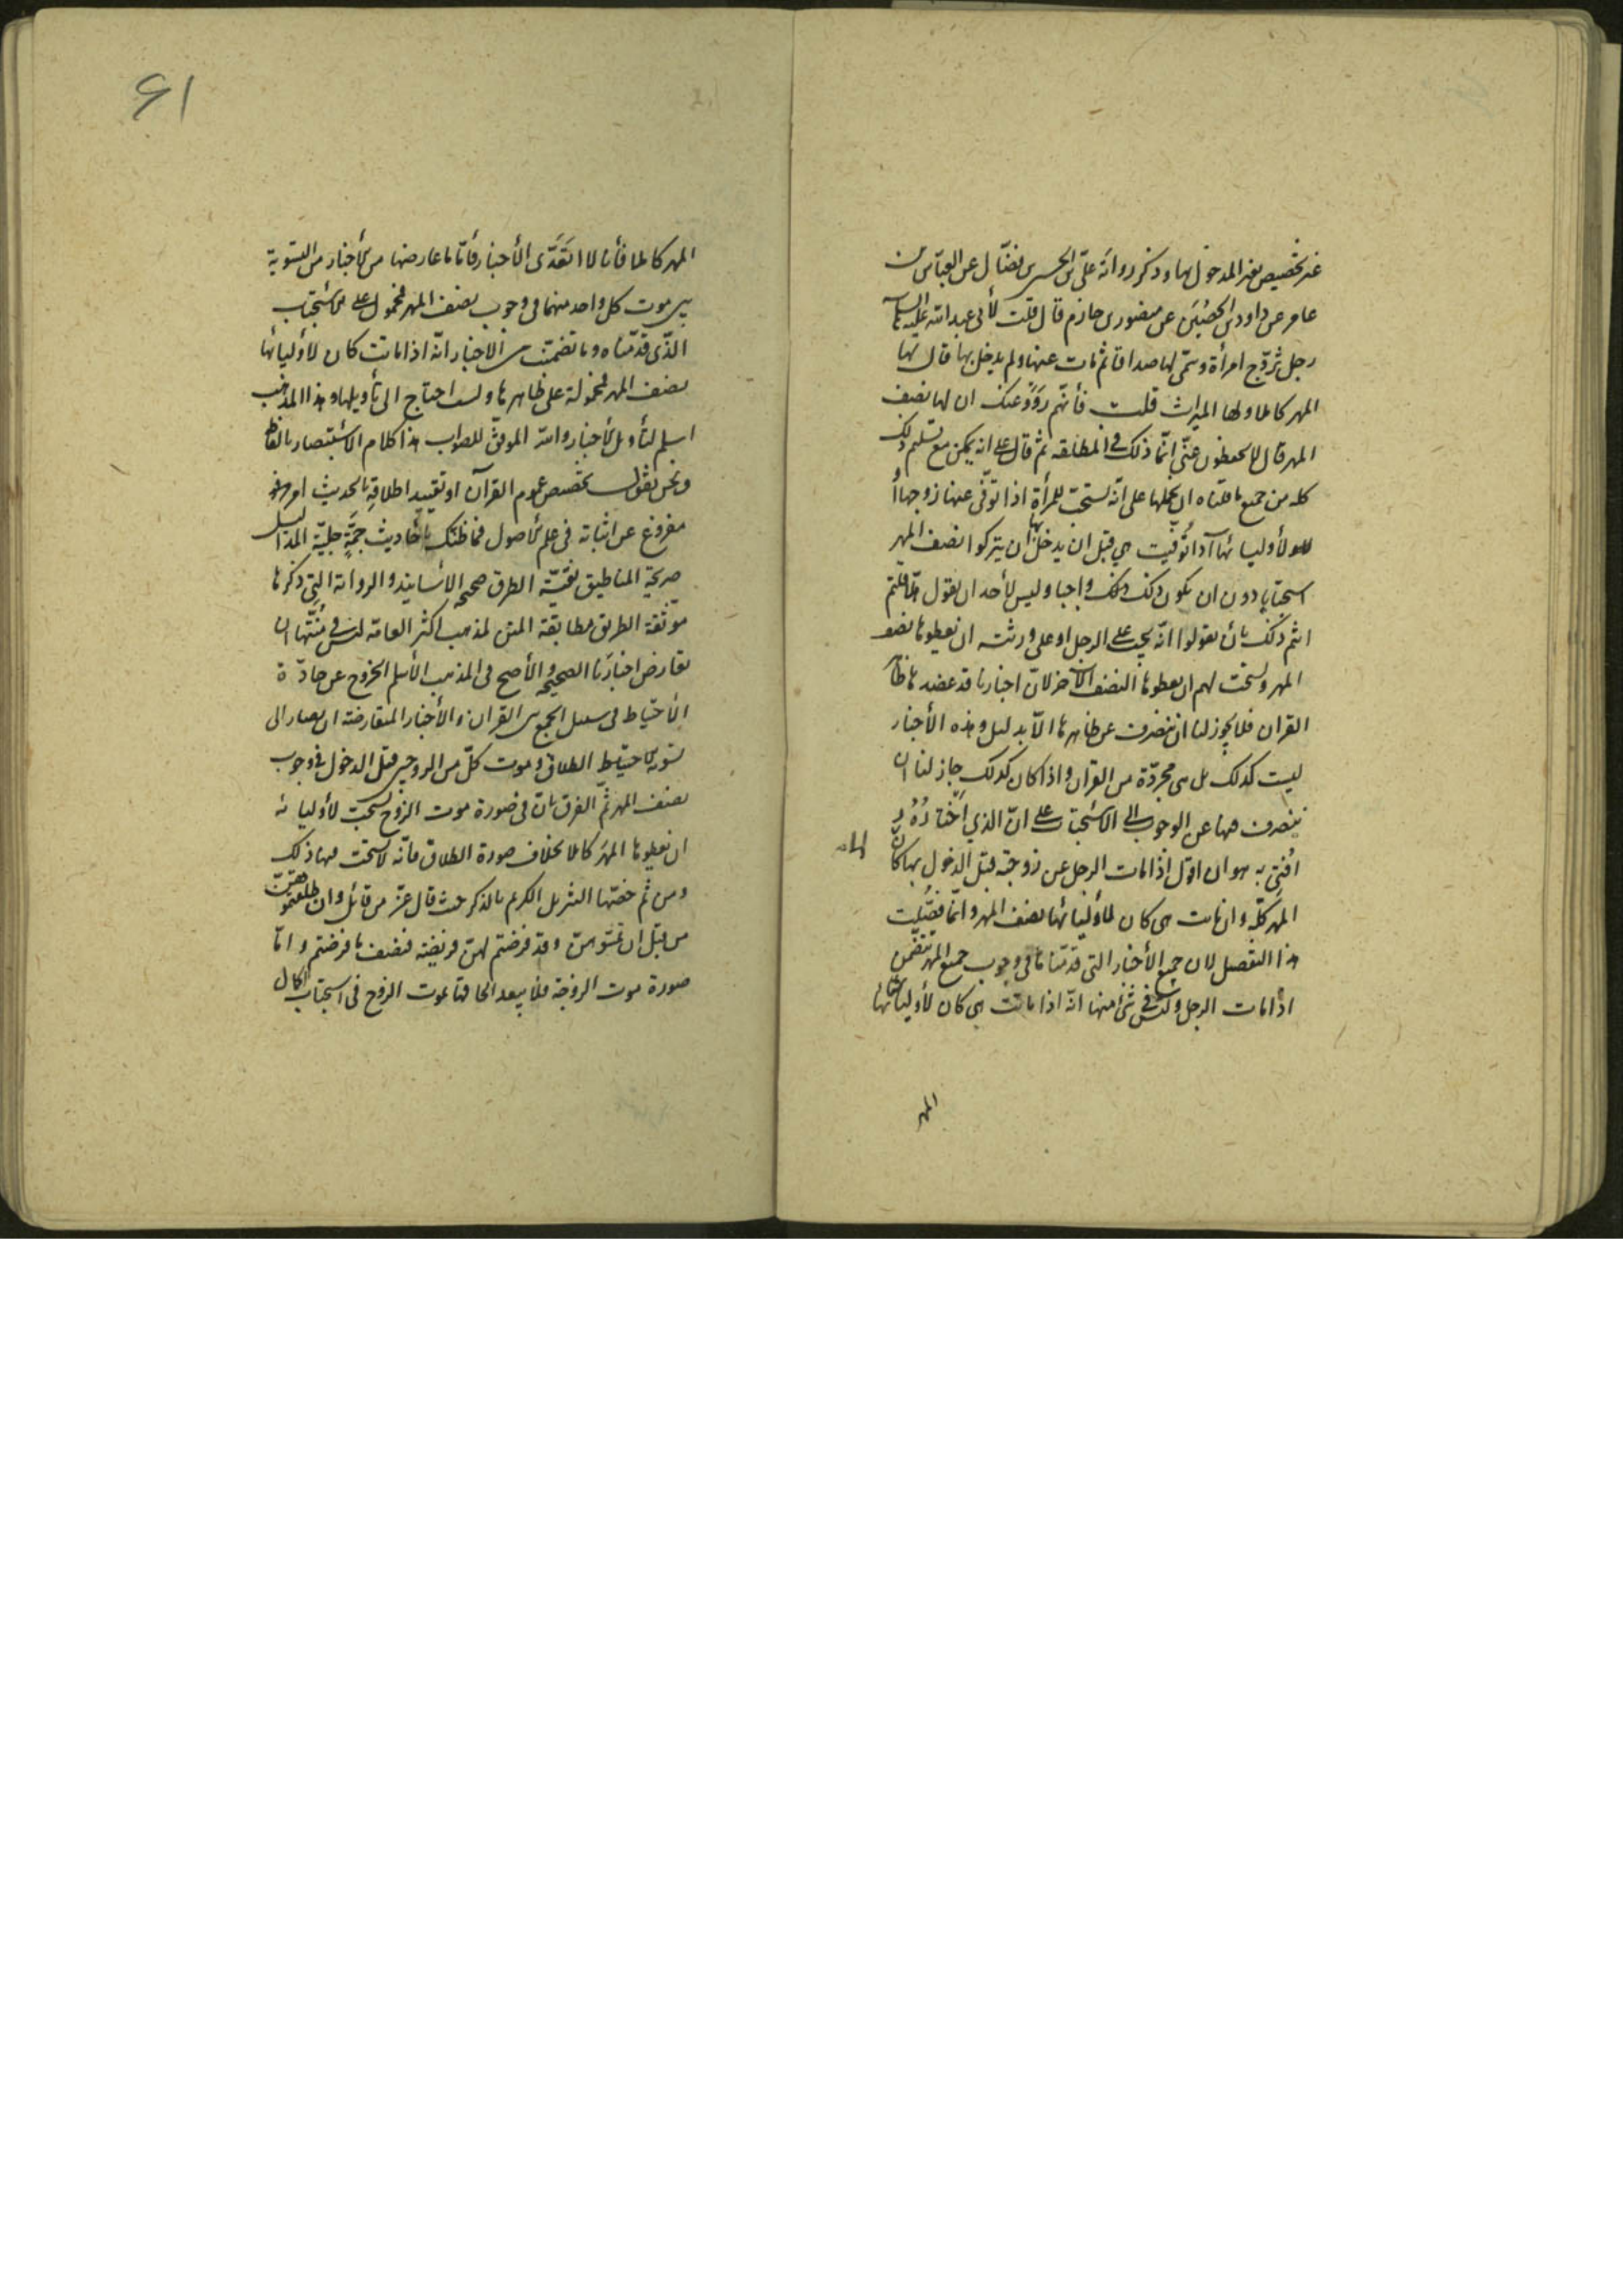 غير تخصيص بغير المدخول بها وذكر رواية علي بن الحسن بن فضال عن العباس بن
عامر عن داود بن الحصين عن منصور بن حازم قال قلت لأبي عبد الله عليه السلام
رجل تزوج امرأة وسمى لها صداقا ثم مات عنها ولم يدخل بها قال لها
المهر كاملا ولها الميراث قلت فأنهم رووا عنك ان لها نصف
المهر قال لا يحفظون عني انما ذلك في المطلقة ثم قال على انه يمكن مع تسليم ذلك
كله من جميع ما قلناه ان نحملها على انه يستحب للمرأة اذا توفى عنها زوجها أ
ولأوليائها اذا توفيت هي قبل ان يدخل بها أن يتركوا نصف المهر
استحبابا دون ان يكون ذلك واجبا وليس لأحد ان يقول هلا قلتم
انتم ذلك بأن تقولوا انه يجب على الرجل او على ورثته ان يعطوها نصف
المهر ويستحب لهم ان يعطوها النصف الآخر لان اخبارنا قد عضدها ظاهر
القران فلا يجوز لنا ان ننصرف عن ظاهرها الا بدليل وهذه الأخبار
ليست كذلك بل هي مجردة من القران واذا كان كذلك جاز لنا ان
ننصرف هها عن الوجوب الى الاستحباب على ان الذي اختاره و
افتي به هو ان اقول اذا مات الرجل عن زوجته قبل الدخول بها كان لها
المهر كله وان ماتت هي كان لأوليائها نصف المهر وانما فصلت
هذا التفصيل لان جميع الأخبار التي قدمناها في وجوب جميع المهر تتضمن
اذا مات الرجل وليس في شئ منها انه اذا ماتت هي كان لأوليائها
المهر
۶۱
المهر كاملا فأنا لا اتعدى الأخبار فأما ما عارضها من الأخبار من التسوية
بين موت كل واحد منهما في وجوب نصف المهر فمحمول على الاستحباب
الذي قدمناه وما تضمنت من الاخبار انه اذا ماتت كان لأوليائها
نصف المهر فمحمولة على ظاهرها ولست احتاج الى تأويلها وهذا المذهب
اسلم لتأويل الأخبار والله الموفق للصواب هذا كلام الاستبصار بالفاظه
ونحن نقول تخصيص عموم القرآن او تقييد اطلاقه بالحديث امر
مفروغ عن اثباته في علم الأصول فما ظنك بأحاديث جمة جلية المداليل
صريحة المناطيق نقية الطرق صحيحة الاسانيد والرواية التي ذكرها
موثقة الطريق مطابقة المتن لمذهب اكثر العامة ليس في منتها ان
تعارض اخبارنا الصحيحة والأصح في المذهب الأسلم الخروج عن جادة
الأحتياط في سبيل الجمع بين القران والأخبار المتعارضة ان يصار الى
تسوية الاحتياط الطلاق وموت كل من الزوجين قبل الدخول في وجوب
نصف المهر ثم الفرق بان في صورة موت الزوج يستحب لأوليائه
ان يعطوها المهر كاملا بخلاف صورة الطلاق فانه لا يستحب فيها ذلك
ومن ثم خصتها التنزيل الكريم بالذكر حيث قال عز من قائل وان طلقتموهن
من قبل ان تمسوهن وقد فرضتم لهن فريضة فنصف ما فرضتم واما
صورة موت الزوجة فلا يبعد الحاقها بموت الزوج في استحباب اكمال